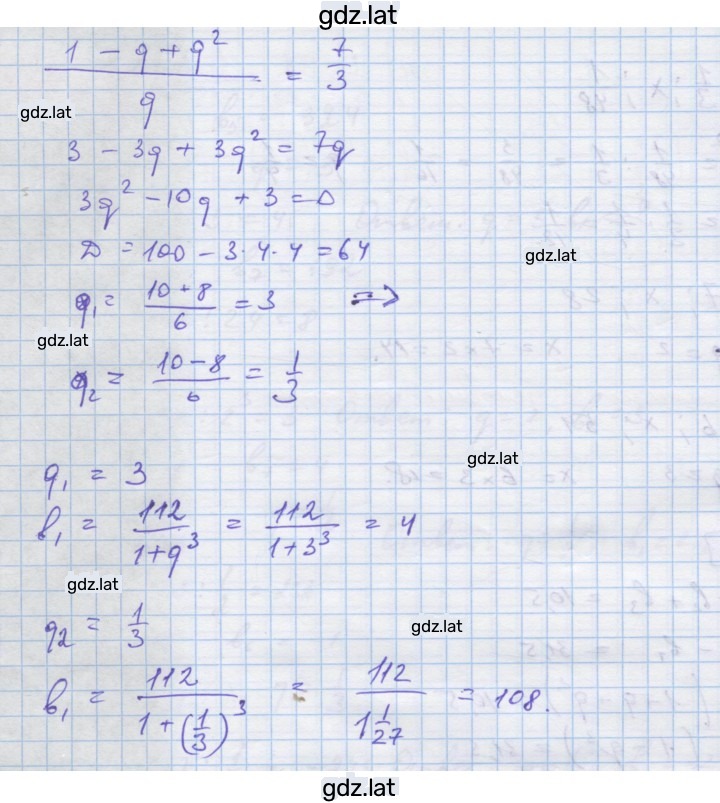 gdz.lat
(1 - q + q²)/q = 7/3
gdz.lat
3 - 3q + 3q² = 7q
3q² - 10q + 3 = 0
D = 100 - 3·4·4 = 64
gdz.lat
q₁ = (10 + 8)/6 = 3 =>
gdz.lat
q₂ = (10 - 8)/6 = 1/3
gdz.lat
q₁ = 3
b₁ = 112/(1+q³) = 112/(1+3³) = 4
gdz.lat
q₂ = 1/3
gdz.lat
b₁ = 112/(1+(1/3)³) = 112/(1 1/27) = 108.
gdz.lat